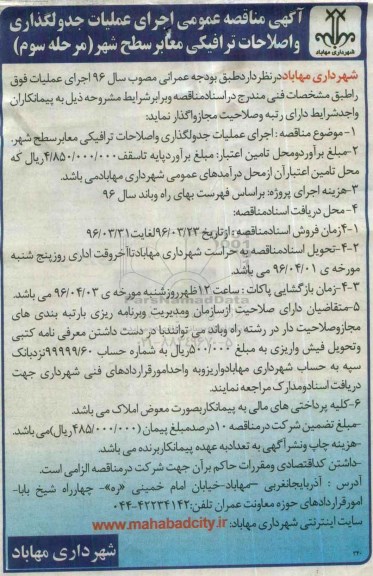 آگهی مناقصه عمومی اجرای عملیات جدولگذاری
واصلاحات ترافیکی معابر سطح شهر (مرحله سوم)
شهرداری مهاباد
شهرداری مهاباد درنظر دارد طبق بودجه عمرانی مصوب سال ۹۶ اجرای عملیات فوق
راطبق مشخصات فنی مندرج در اسناد مناقصه وبرابر شرایط مشروحه ذیل به پیمانکاران
واجد شرایط دارای رتبه وصلاحیت مجاز واگذار نماید:
۱-موضوع مناقصه : اجرای عملیات جدولگذاری واصلاحات ترافیکی معابر سطح شهر.
۲-مبلغ برآورد ومحل تامین اعتبار: مبلغ برآورد پایه تاسقف ۴/۸۵۰/۰۰۰/۰۰۰ ریال که
محل تامین اعتبار آن از محل درآمدهای عمومی شهرداری مهاباد می باشد.
۳-هزینه اجرای پروژه: براساس فهرست بهای راه وباند سال ۹۶
۴-محل دریافت اسناد مناقصه:
۴-۱زمان فروش اسناد مناقصه : از تاریخ ۹۶/۰۳/۲۳ لغایت ۹۶/۰۳/۳۱
۴-۲-تحویل اسناد مناقصه به حراست شهرداری مهاباد تا آخر وقت اداری روز پنج شنبه
مورخه ی ۹۶/۰۴/۰۱ می باشد.
۴-۳-زمان بازگشایی پاکات : ساعت ۱۲ ظهر روز شنبه مورخه ی ۹۶/۰۴/۰۳ می باشد.
۵-متقاضیان دارای صلاحیت از سازمان ومدیریت وبرنامه ریزی با رتبه بندی های
مجاز وصلاحیت دار در رشته راه وباند می توانند با در دست داشتن معرفی نامه کتبی
وتحویل فیش واریزی به مبلغ ۵۰۰/۰۰۰ ریال به شماره حساب ۹۹۹۹۹/۶۰ نزد بانک
سپه به حساب شهرداری مهاباد واریز وبه واحد امور قراردادهای فنی شهرداری جهت
دریافت اسناد ومدارک مراجعه نمایند.
۶-کلیه پرداختی های مالی به پیمانکار بصورت معوض املاک می باشد.
-مبلغ تضمین شرکت در مناقصه ۱۰ درصد مبلغ پیمان (۴۸۵/۰۰۰/۰۰۰ ریال) می باشد.
-هزینه چاپ ونشر آگهی به تعداد به عهده پیمانکار برنده می باشد.
-داشتن کد اقتصادی ومقررات حاکم بر آن جهت شرکت در مناقصه الزامی است.
آدرس : آذربایجانغربی –مهاباد-خیابان امام خمینی «ره»- چهارراه شیخ بابا-
امور قراردادهای حوزه معاونت عمران تلفن: ۴۲۲۳۴۱۴۲-۰۴۴
سایت اینترنتی شهرداری مهاباد: www.mahabadcity.ir
شهرداری مهاباد